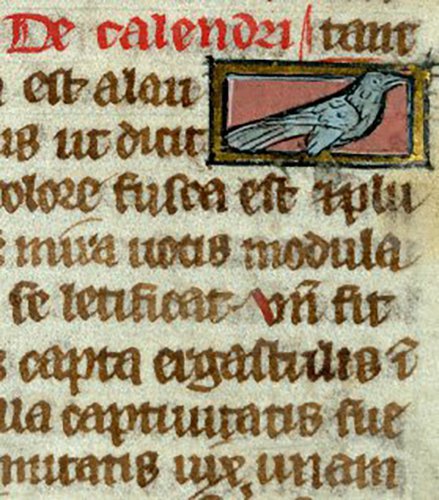 De calendri tant
est alau
us ut dicit
olore fusca est ⁊ plu
mira uocis modula
se letificat vn̄ fit
s capta ergastulis ī
lla captiuitatis sue
mutatis uix unam